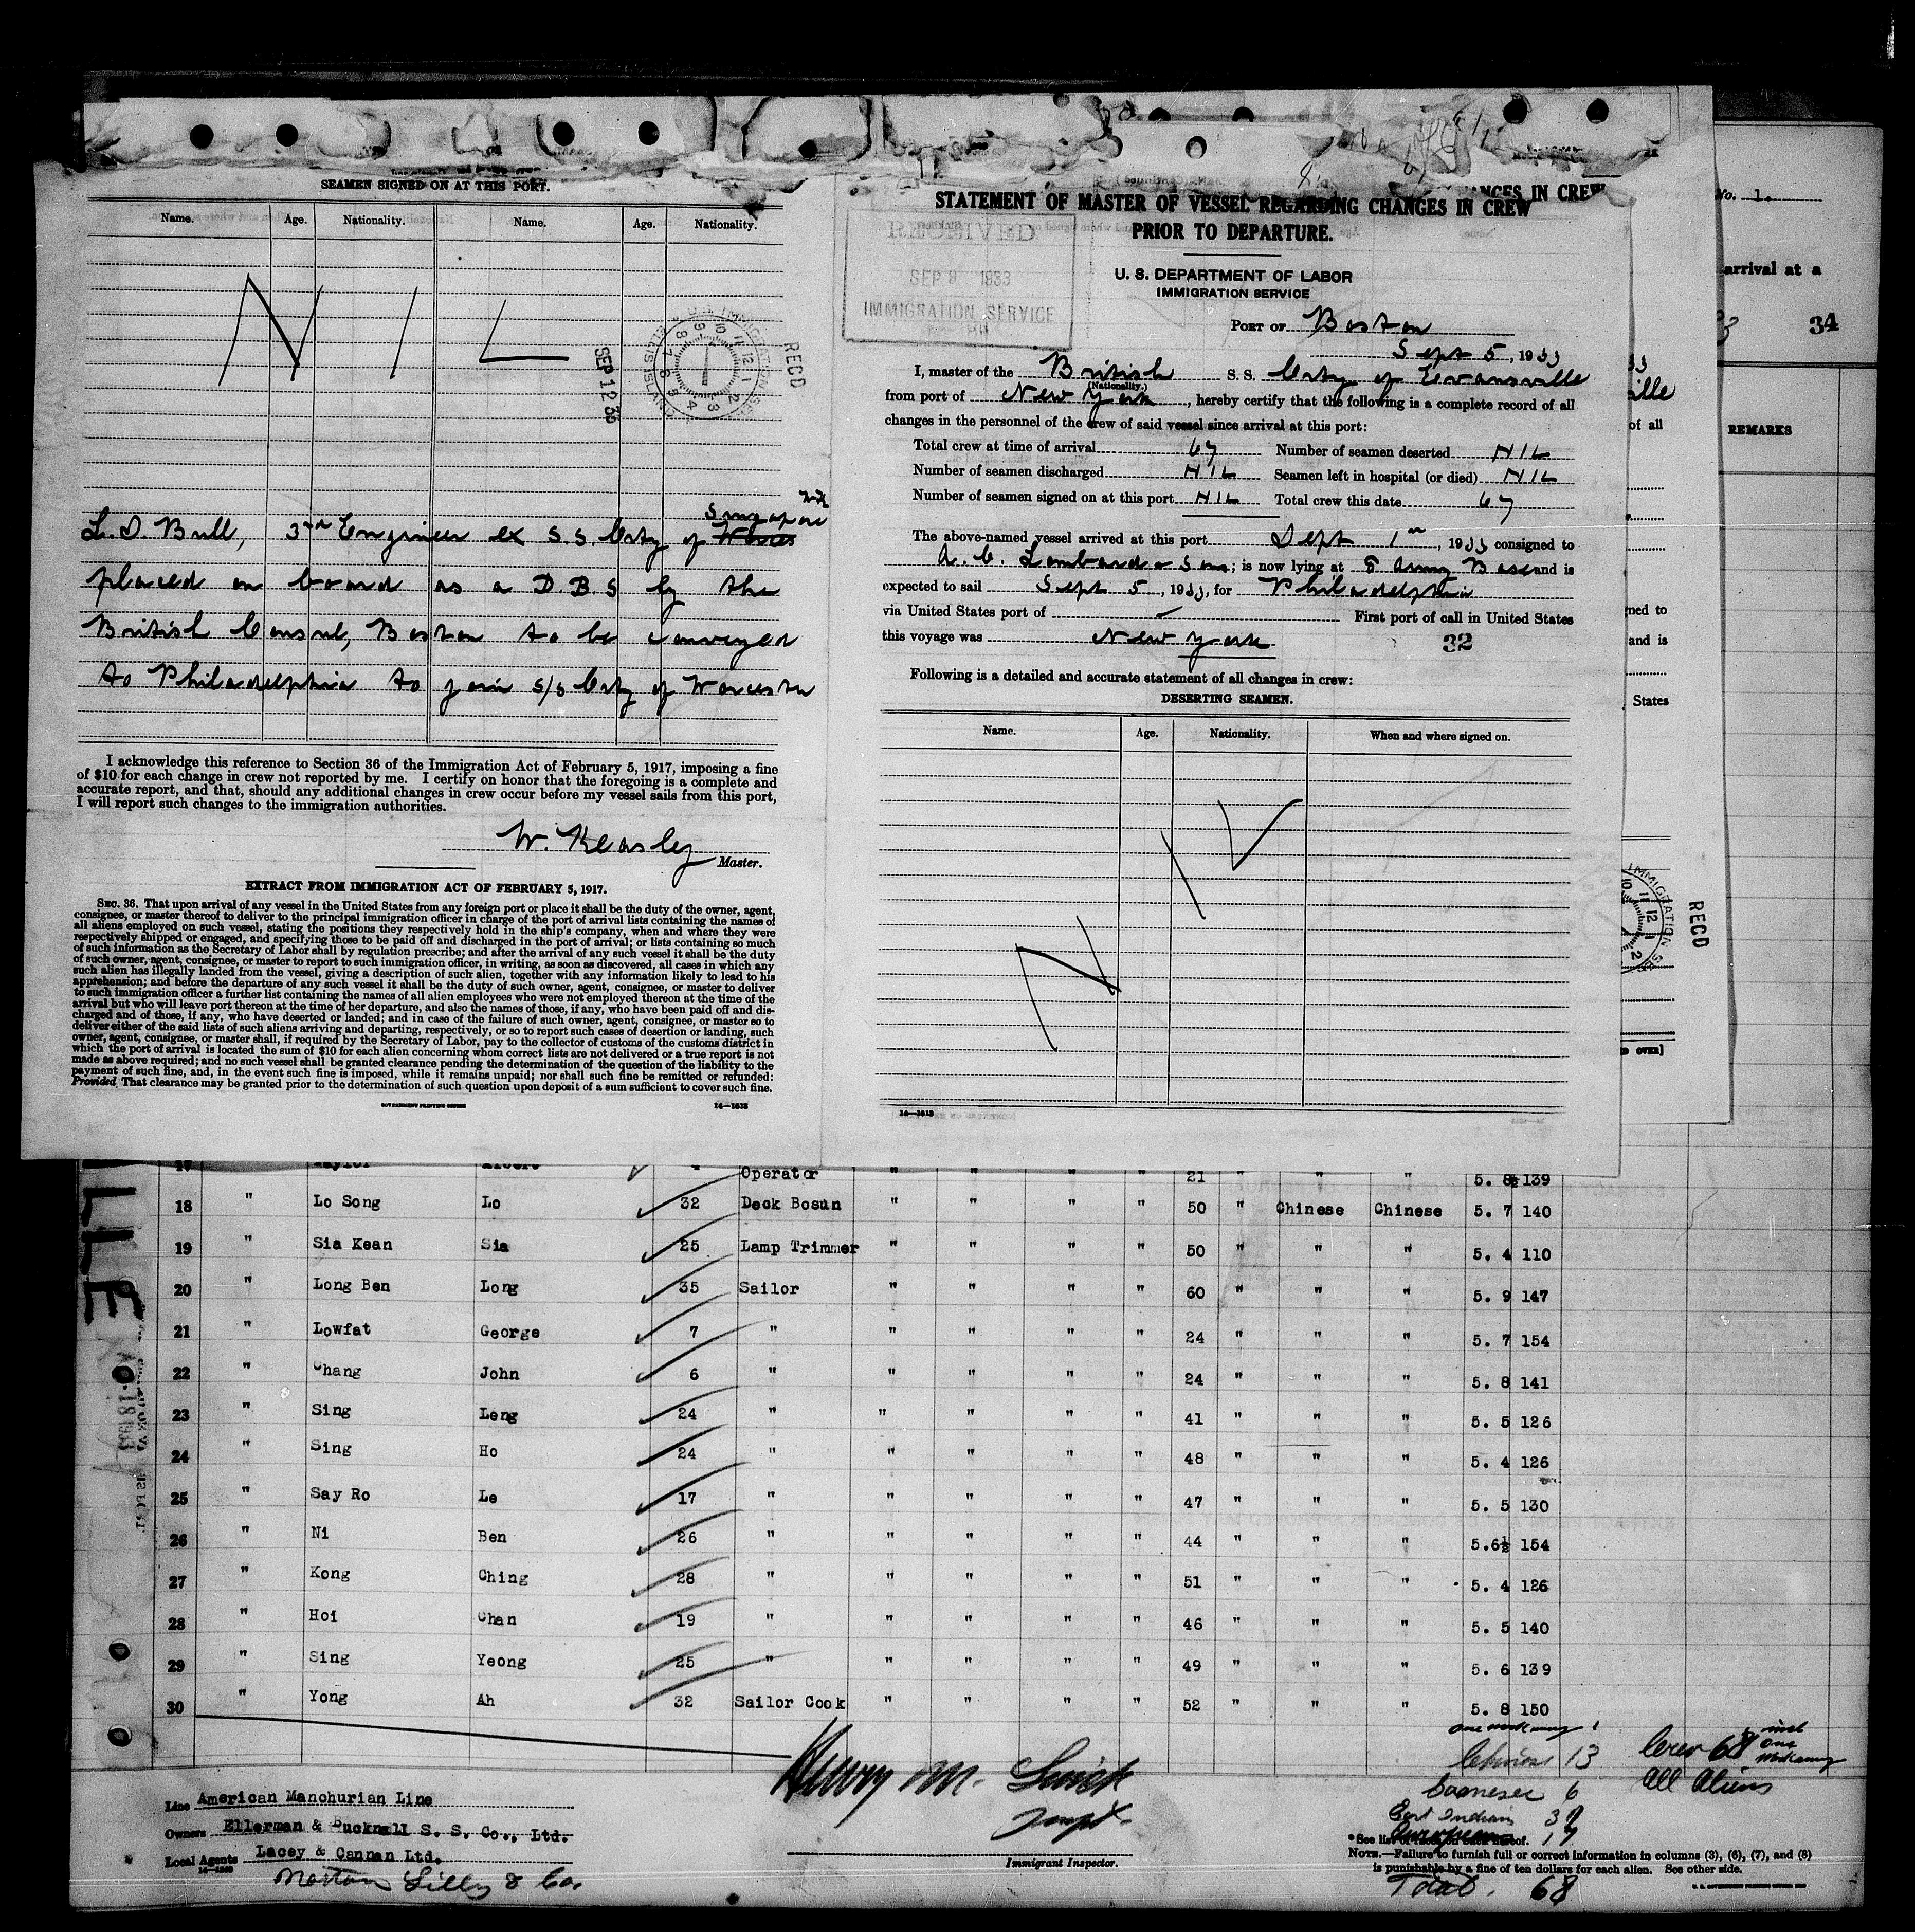 SEAMEN SIGNED ON AT THIS PORT.
Name. Age. Nationality. Name. Age. Nationality.
N I L
RECD
SEP 12 33
L. D. Bull, 3rd Engineer ex S.S. City of Singapore
placed on board as a D.B.S by the
British Consul, Boston to be conveyed
to Philadelphia to join s/s City of Worcester
I acknowledge this reference to Section 36 of the Immigration Act of February 5, 1917, imposing a fine
of $10 for each change in crew not reported by me. I certify on honor that the foregoing is a complete and
accurate report, and that, should any additional changes in crew occur before my vessel sails from this port,
I will report such changes to the immigration authorities.
W. Keasley
Master.
EXTRACT FROM IMMIGRATION ACT OF FEBRUARY 5, 1917.
SEC. 36. That upon arrival of any vessel in the United States from any foreign port or place it shall be the duty of the owner, agent,
consignee, or master thereof to deliver to the principal immigration officer in charge of the port of arrival lists containing the names of
all aliens employed on such vessel, stating the positions they respectively hold in the ship's company, when and where they were
respectively shipped or engaged, and specifying those to be paid off and discharged in the port of arrival; or lists containing so much
of such information as the Secretary of Labor shall by regulation prescribe; and after the arrival of any such vessel it shall be the duty
of such owner, agent, consignee, or master to report to such immigration officer, in writing, as soon as discovered, all cases in which any
such alien has illegally landed from the vessel, giving a description of such alien, together with any information likely to lead to his
apprehension; and before the departure of any such vessel it shall be the duty of such owner, agent, consignee, or master to deliver
to such immigration officer a further list containing the names of all alien employees who were not employed thereon at the time of the
arrival but who will leave port thereon at the time of her departure, and also the names of those, if any, who have been paid off and dis-
charged and of those, if any, who have deserted or landed; and in case of the failure of such owner, agent, consignee, or master so to
deliver either of the said lists of such aliens arriving and departing, respectively, or so to report such cases of desertion or landing, such
owner, agent, consignee, or master shall, if required by the Secretary of Labor, pay to the collector of customs of the customs district in
which the port of arrival is located the sum of $10 for each alien concerning whom correct lists are not delivered or a true report is not
made as above required; and no such vessel shall be granted clearance pending the determination of the question of the liability to the
payment of such fine, and, in the event such fine is imposed, while it remains unpaid; nor shall such fine be remitted or refunded:
Provided That clearance may be granted prior to the determination of such question upon deposit of a sum sufficient to cover such fine.
GOVERNMENT PRINTING OFFICE 14—1613
STATEMENT OF MASTER OF VESSEL REGARDING CHANGES IN CREW
PRIOR TO DEPARTURE.
RECEIVED
SEP 8 1933
IMMIGRATION SERVICE
U. S. DEPARTMENT OF LABOR
IMMIGRATION SERVICE
PORT OF Boston
Sept 5, 1933
I, master of the British S.S. City of Evansville
(Nationality.)
from port of New York, hereby certify that the following is a complete record of all
changes in the personnel of the crew of said vessel since arrival at this port:
Total crew at time of arrival 67 Number of seamen deserted NIL
Number of seamen discharged NIL Seamen left in hospital (or died) NIL
Number of seamen signed on at this port NIL Total crew this date 67
The above-named vessel arrived at this port Sept 1st, 1933 consigned to
A. C. Lombard & Sons; is now lying at 8 Army Base and is
expected to sail Sept 5, 1933, for Philadelphia
via United States port of First port of call in United States
this voyage was New York
32
Following is a detailed and accurate statement of all changes in crew:
DESERTING SEAMEN.
Name. Age. Nationality. When and where signed on.
N I L
14—1613
ANGES IN CREW
No. 1.
arrival at a
34
ville
of all
REMARKS
ned to
and is
States
RECD
OVER]
LLE
17 Taylor Albert Operator " " " " 21 " " " 5. 8½ 139
18 " Lo Song Lo 32 Deck Bosun " " " " 50 " Chinese Chinese 5. 7 140
19 " Sia Kean Sia 25 Lamp Trimmer " " " " 50 " " " 5. 4 110
20 " Long Ben Long 35 Sailor " " " " 60 " " " 5. 9 147
21 " Lowfat George 7 " " " " " 24 " " " 5. 7 154
22 " Chang John 6 " " " " " 24 " " " 5. 8 141
23 " Sing Leng 24 " " " " " 41 " " " 5. 5 126
24 " Sing Ho 24 " " " " " 48 " " " 5. 4 126
25 " Say Ro Le 17 " " " " " 47 " " " 5. 5 130
26 " Ni Ben 26 " " " " " 44 " " " 5.6½ 154
27 " Kong Ching 28 " " " " " 51 " " " 5. 4 126
28 " Hoi Chan 19 " " " " " 46 " " " 5. 5 140
29 " Sing Yeong 25 " " " " " 49 " " " 5. 6 139
30 " Yong Ah 32 Sailor Cook " " " " 52 " " " 5. 8 150
one workaway 1
Chinese 13
Crew 68 incl one workaway
All Aliens
6
East Indian
17
Total. 68
Henry M.
Immigrant Inspector.
Line American Manchurian Line
Owners Ellerman & Bucknall S. S. Co., Ltd.
Local Agents Lacey & Cannan Ltd.
Norton Lilly & Co.
NOTE.—Failure to furnish full or correct information in columns (3), (6), (7), and (8)
is punishable by a fine of ten dollars for each alien. See other side.